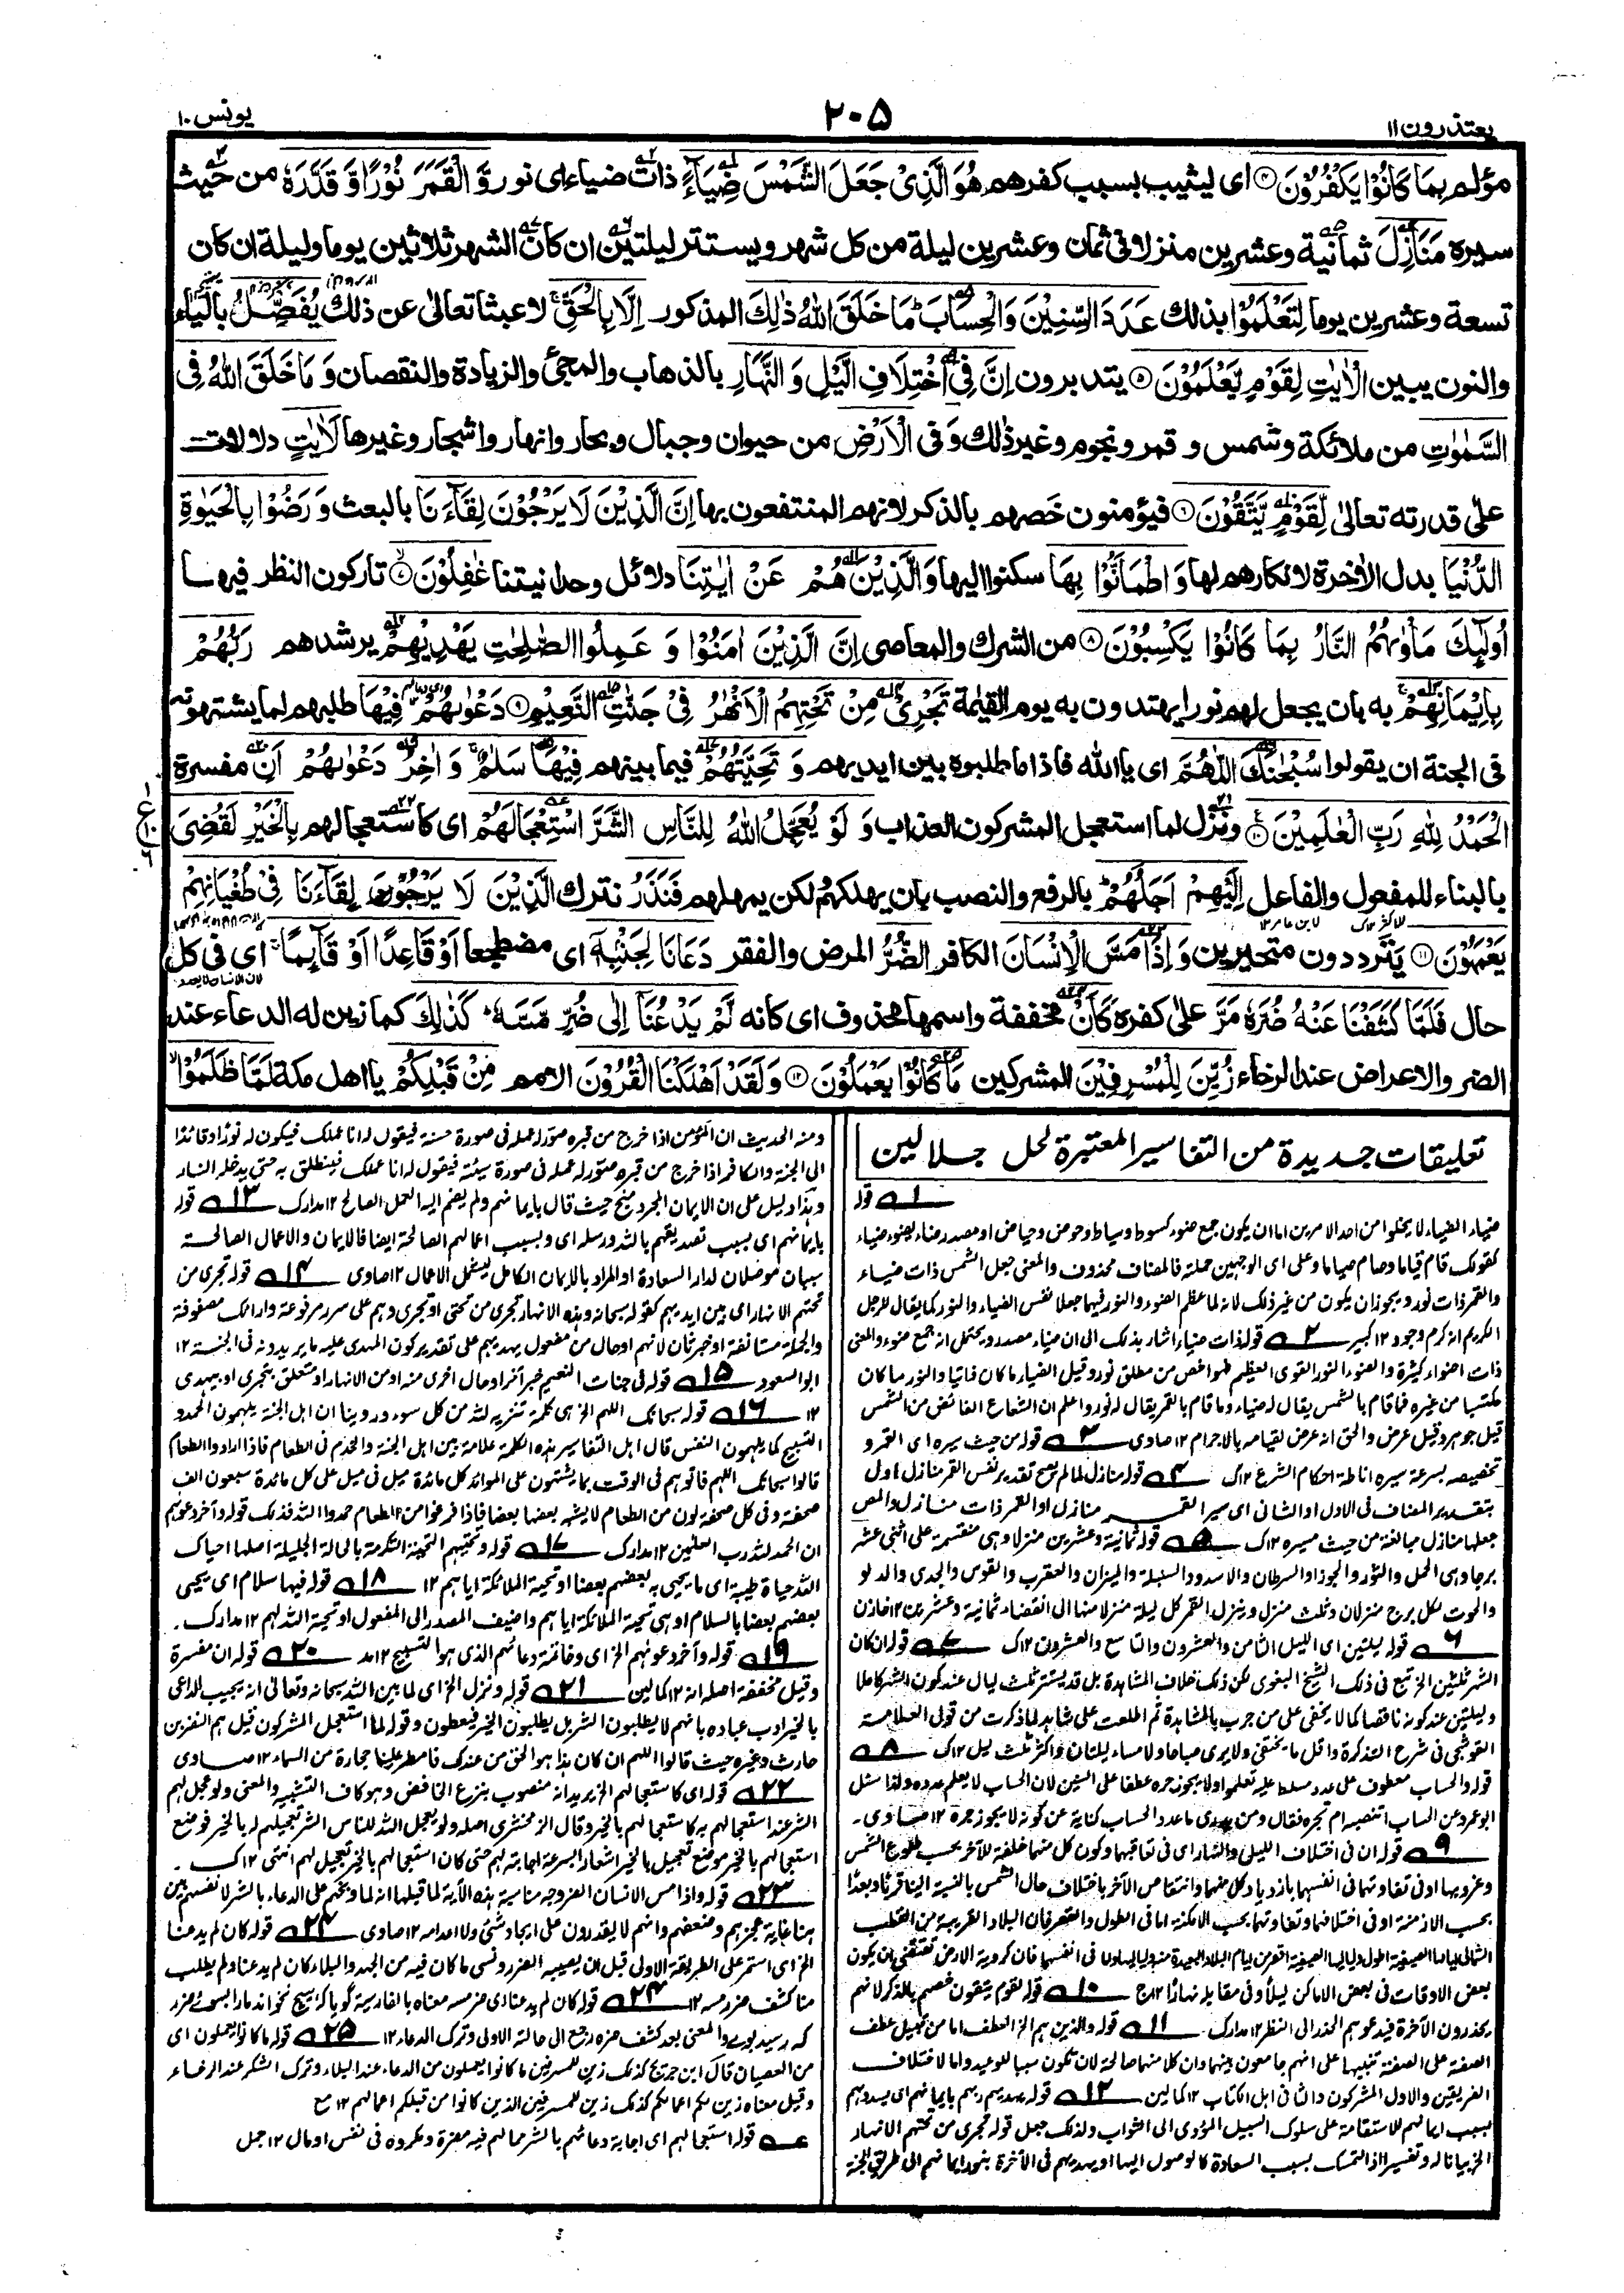 يونس ١٠
٢٠٥
يعتذرون ١١
مؤلم بِمَا كَانُوْا يَكْفُرُوْنَ ۝٤ اى ليثيب بسبب كفرهم هُوَ الَّذِىْ جَعَلَ الشَّمْسَ ضِيَآءً ذات ضياء اى نور وَّ الْقَمَرَ نُوْرًا وَّ قَدَّرَهٗ من حيث
سيره مَنَازِلَ ثمانية وعشرين منزلا فى ثمان وعشرين ليلة من كل شهر ويستتر ليلتين ان كان الشهر ثلاثين يوما وليلة ان كان
تسعة وعشرين يوما لِتَعْلَمُوْا بذلك عَدَدَ السِّنِيْنَ وَالْحِسَابَ ؕ مَا خَلَقَ اللّٰهُ ذٰلِكَ المذكور اِلَّا بِالْحَقِّ ۚ لا عبثا تعالى عن ذلك يُفَصِّلُ بالياء
والنون يبين الْاٰيٰتِ لِقَوْمٍ يَّعْلَمُوْنَ ۝٥ يتدبرون اِنَّ فِى اخْتِلَافِ الَّيْلِ وَ النَّهَارِ بالذهاب والمجئ والزيادة والنقصان وَ مَا خَلَقَ اللّٰهُ فِى
السَّمٰوٰتِ من ملائكة وشمس و قمر ونجوم وغير ذلك وَ فى الْاَرْضِ من حيوان وجبال وبحار وانهار واشجار وغيرها لَاٰيٰتٍ دلالات
على قدرته تعالى لِّقَوْمٍ يَّتَّقُوْنَ ۝٦ فيؤمنون خصهم بالذكر لانهم المنتفعون بها اِنَّ الَّذِيْنَ لَا يَرْجُوْنَ لِقَآءَنَا بالبعث وَ رَضُوْا بِالْحَيٰوةِ
الدُّنْيَا بدل الاخرة لانكارهم لها وَ اطْمَاَنُّوْا بِهَا سكنوا اليها وَ الَّذِيْنَ هُمْ عَنْ اٰيٰتِنَا دلائل وحدانيتنا غٰفِلُوْنَ ۝٧ تاركون النظر فيها
اُولٰٓئِكَ مَاْوٰىهُمُ النَّارُ بِمَا كَانُوْا يَكْسِبُوْنَ ۝٨ من الشرك والمعاصى اِنَّ الَّذِيْنَ اٰمَنُوْا وَ عَمِلُوا الصّٰلِحٰتِ يَهْدِيْهِمْ يرشدهم رَبُّهُمْ
بِاِيْمَانِهِمْ ۚ به بان يجعل لهم نورا يهتدون به يوم القيمة تَجْرِىْ مِنْ تَحْتِهِمُ الْاَنْهٰرُ فِىْ جَنّٰتِ النَّعِيْمِ ۝٩ دَعْوٰىهُمْ فِيْهَا طلبهم لما يشتهونه
فى الجنة ان يقولوا سُبْحٰنَكَ اللّٰهُمَّ اى يا الله فاذا ما طلبوه بين ايديهم وَ تَحِيَّتُهُمْ فيما بينهم فِيْهَا سَلٰمٌ ۚ وَ اٰخِرُ دَعْوٰىهُمْ اَنِ مفسرة
الْحَمْدُ لِلّٰهِ رَبِّ الْعٰلَمِيْنَ ۝١٠ ونزل لما استعجل المشركون العذاب وَ لَوْ يُعَجِّلُ اللّٰهُ لِلنَّاسِ الشَّرَّ اسْتِعْجَالَهُمْ اى كاستعجالهم بِالْخَيْرِ لَقُضِىَ
بالبناء للمفعول والفاعل اِلَيْهِمْ اَجَلُهُمْ ؕ بالرفع والنصب بان يهلكهم لكن يمهلهم فَنَذَرُ نترك الَّذِيْنَ لَا يَرْجُوْنَ لِقَآءَنَا فِىْ طُغْيَانِهِمْ
يَعْمَهُوْنَ ۝١١ يترددون متحيرين وَ اِذَا مَسَّ الْاِنْسَانَ الكافر الضُّرُّ المرض والفقر دَعَانَا لِجَنْۢبِهٖۤ اى مضطجعا اَوْ قَاعِدًا اَوْ قَآئِمًا ۚ اى فى كل
حال فَلَمَّا كَشَفْنَا عَنْهُ ضُرَّهٗ مَرَّ على كفره كَاَنْ مخففة واسمها محذوف اى كانه لَّمْ يَدْعُنَاۤ اِلٰى ضُرٍّ مَّسَّهٗ ؕ كَذٰلِكَ كما زين له الدعاء عند
الضر والاعراض عند الرخاء زُيِّنَ لِلْمُسْرِفِيْنَ للمشركين مَا كَانُوْا يَعْمَلُوْنَ ۝١٢ وَ لَقَدْ اَهْلَكْنَا الْقُرُوْنَ الامم مِنْ قَبْلِكُمْ يا اهل مكة لَمَّا ظَلَمُوْا
تعليقات جديدة من التفاسير المعتبرة لحل جلالين
١ قوله
ضياء الضياء لا يخلوا من احد الامرين اما ان يكون جمع ضوء كسوط وسياط وحوض وحياض او مصدر ضاء يضوء ضياء
كقولك قام قياما وصام صياما وعلى اى الوجهين حملته فالمضاف محذوف والمعنى جعل الشمس ذات ضياء
والقمر ذات نور ويجوز ان يكون من غير ذلك لانه لما عظم الضوء والنور فيهما جعلا نفس الضياء والنور كما يقال للرجل
الكريم انه كرم وجود ١٢ كبير ٢ قوله ذات ضياء اشار بذلك الى ان ضياء مصدر ويحتمل انه جمع ضوء والمعنى
ذات اضواء كثيرة والضوء النور القوى العظيم فهو اخص من مطلق نور وقيل الضياء ما كان ذاتيا والنور ما كان
مكتسبا من غيره فما قام بالشمس يقال له ضياء وما قام بالقمر يقال له نور واعلم ان الشعاع الفائض من الشمس
قيل جوهر وقيل عرض والحق انه عرض لقيامه بالاجرام ١٢ صاوى ٣ قوله من حيث سيره اى القمر و
تخصيصه بسرعة سيره اناطة احكام الشرع ١٢ ك ٤ قوله منازل لما لم يصح تقدير نفس القمر منازل اول
بتقدير المضاف فى الاول او الثانى اى سير القمر منازل او القمر ذات منازل والمص
جعلها منازل مبالغة من حيث مسيره ١٢ ك ٥ قوله ثمانية وعشرين منزلا وهى منقسمة على اثنى عشر
برجا وهى الحمل والثور والجوزاء والسرطان والاسد والسنبلة والميزان والعقرب والقوس والجدى والدلو
والحوت لكل برج منزلان وثلث منزل وينزل القمر كل ليلة منزلا منها الى انقضاء ثمانية وعشرين ١٢ خازن
٦ قوله ليلتين اى الليل الثامن والعشرون والتاسع والعشرون ١٢ ك ٧ قوله ان كان
الشهر ثلثين الخ تبع فى ذلك الشيخ البغوى لكن ذلك خلاف المشاهدة بل قد يستتر ثلث ليال عند كون الشهر كاملا
وليلتين عند كونه ناقصا كما لا يخفى على من جرب بالمشاهدة ثم اطلعت على شاهد لما ذكرت من قول العلامة
القوشجى فى شرح التذكرة واقل ما يختفى ولا يرى صباحا ولا مساء ليلتان واكثر ثلث ليل ١٢ ك ٨
قوله والحساب معطوف على عدد مسلط عليه تعلموا ولا يجوز جره عطفا على السنين لان الحساب لا يعلم عدده ولذا سئل
ابو عمرو عن الحساب اتنصبه ام تجره فقال ومن يدرى ما عدد الحساب كناية عن كونه لا يجوز جره ١٢ صاوى ۔
٩ قوله ان فى اختلاف الليل والنهار اى فى تعاقبهما وكون كل منهما خلفة للآخر بحسب طلوع الشمس
وغروبها او فى تفاوتهما فى انفسهما بازدياد كل منهما وانتقاص الآخر باختلاف حال الشمس بالنسبة الينا قربا وبعدا
بحسب الازمنة او فى اختلافهما وتفاوتهما بحسب الامكنة اما فى الطول والقصر فان البلاد القريبة من القطب
الشمالى ايامها الصيفية اطول ولياليها الصيفية اقصر من ايام البلاد البعيدة منه ولياليها واما فى انفسهما فان كروية الارض تقتضى ان يكون
بعض الاوقات فى بعض الاماكن ليلا وفى مقابله نهارا ١٢ ج ١٠ قوله لقوم يتقون خصهم بالذكر لانهم
يحذرون الآخرة فيدعوهم الحذر الى النظر ١٢ مدارك ١١ قوله والذين هم الخ العطف اما من قبيل عطف
الصفة على الصفة تنبيها على انهم جامعون بينهما وان كلا منهما صالحة لان تكون سببا للوعيد واما لاختلاف
الفريقين والاول المشركون والثانى اهل الكتاب ١٢ كمالين ١٢ قوله يهديهم ربهم بايمانهم اى يسددهم
بسبب ايمانهم للاستقامة على سلوك السبيل المؤدى الى الثواب ولذلك جعل قوله تجرى من تحتهم الانهار
الخ بيانا له وتفسيرا اذ التمسك بسبب السعادة كالوصول اليها او يهديهم فى الآخرة بنور ايمانهم الى طريق الجنة
ومنه الحديث ان المؤمن اذا خرج من قبره صور له عمله فى صورة حسنة فيقول له انا عملك فيكون له نورا وقائدا
الى الجنة والكافر اذا خرج من قبره صور له عمله فى صورة سيئة فيقول له انا عملك فينطلق به حتى يدخله النار
وهذا دليل على ان الايمان المجرد منج حيث قال بايمانهم ولم يضم اليه العمل الصالح ١٢ مدارك ١٣ قوله
بايمانهم اى بسبب تصديقهم بالله ورسله اى وبسبب اعمالهم الصالحة ايضا فالايمان والاعمال الصالحة
سببان موصلان لدار السعادة او المراد بالايمان الكامل ليشمل الاعمال ١٢ صاوى ١٤ قوله تجرى من
تحتهم الانهار اى بين ايديهم كقوله سبحانه وهذه الانهار تجرى من تحتى او تجرى وهم على سرر مرفوعة وارائك مصفوفة
والجملة مستانفة او خبر ثان لانهم او حال من مفعول يهديهم على تقدير كون المهدى عليه ما يريدونه فى الجنة ١٢
ابو السعود ١٥ قوله فى جنات النعيم خبر آخر او حال اخرى منه او من الانهار او متعلق بتجرى او بيهدى
١٢ ١٦ قوله سبحانك اللهم الخ هى كلمة تنزيه لله من كل سوء وروينا ان اهل الجنة يلهمون الحمد و
التسبيح كما يلهمون النفس قال اهل التفاسير هذه الكلمة علامة بين اهل الجنة والخدم فى الطعام فاذا ارادوا الطعام
قالوا سبحانك اللهم فاتوهم فى الوقت بما يشتهون على الموائد كل مائدة ميل فى ميل على كل مائدة سبعون الف
صحفة وفى كل صحفة لون من الطعام لا يشبه بعضها بعضا فاذا فرغوا من الطعام حمدوا الله فذلك قوله وآخر دعوٰهم
ان الحمد لله رب العلمين ١٢ مدارك ١٧ قوله وتحيتهم التحية التكرمة بالحالة الجليلة اصلها احياك
الله حياة طيبة اى ما يحيى به بعضهم بعضا او تحية الملائكة اياهم ١٢ ١٨ قوله فيها سلام اى يحيى
بعضهم بعضا بالسلام او هى تحية الملائكة اياهم واضيف المصدر الى المفعول او تحية الله لهم ١٢ مدارك ۔
١٩ قوله وآخر دعوٰهم الخ اى وخاتمة دعائهم الذى هو التسبيح ١٢ مد ٢٠ قوله ان مفسرة
وقيل مخففة اصله انه ١٢ كمالين ٢١ قوله ونزل الخ اى لما بين الله سبحانه وتعالى انه يجيب الداعى
بالخير ادب عباده بانهم لا يطلبون الشر بل يطلبون الخير فيعطون وقوله لما استعجل المشركون قيل هم النضر بن
حارث وغيره حيث قالوا اللهم ان كان هذا هو الحق من عندك فامطر علينا حجارة من السماء ١٢ صاوى
٢٢ قوله اى كاستعجالهم الخ يريد انه منصوب بنزع الخافض وهو كاف التشبيه والمعنى ولو عجل لهم
الشر عند استعجالهم به كاستعجالهم بالخير وقال الزمخشرى اصله ولو يعجل الله للناس الشر تعجيلهم له بالخير فوضع
استعجالهم بالخير موضع تعجيل بالخير اشعارا بسرعة اجابته لهم حتى كان استعجالهم بالخير تعجيل لهم انتهى ١٢ ك ۔
٢٣ قوله واذا مس الانسان الضر وجه مناسبة هذه الآية لما قبلها انه لما وبخهم على الدعاء بالشر لانفسهم بين
هنا غاية عجزهم وضعفهم وانهم لا يقدرون على ايجاد شئ ولا اعدامه ١٢ صاوى ٢٤ قوله كان لم يدعنا
الخ اى استمر على الطريقة الاولى قبل ان يصيبه الضر ونسى ما كان فيه من الجهد والبلاء كان لم يدعنا ولم يطلب
منا كشف ضر مسه ١٢ ٢٤ قوله كان لم يدعنا الى ضر مسه معناه بالفارسية گويا كه هيچ نخوانده ما را بسوى ضرر
كه رسيد بوے والمعنى بعد كشف ضره رجع الى حالته الاولى وترك الدعاء ١٢ ٢٥ قوله ما كانوا يعملون اى
من العصيان قال ابن جريج كذلك زين للمسرفين ما كانوا يعملون من الدعاء عند البلاء وترك الشكر عند الرخاء
وقيل معناه زين لكم اعمالكم كذلك زين للمسرفين الذين كانوا من قبلكم اعمالهم ١٢ مع
عه قوله استعجالهم اى اجابة دعائهم بالشر مما لهم فيه مضرة ومكروه فى نفس او مال ١٢ جمل